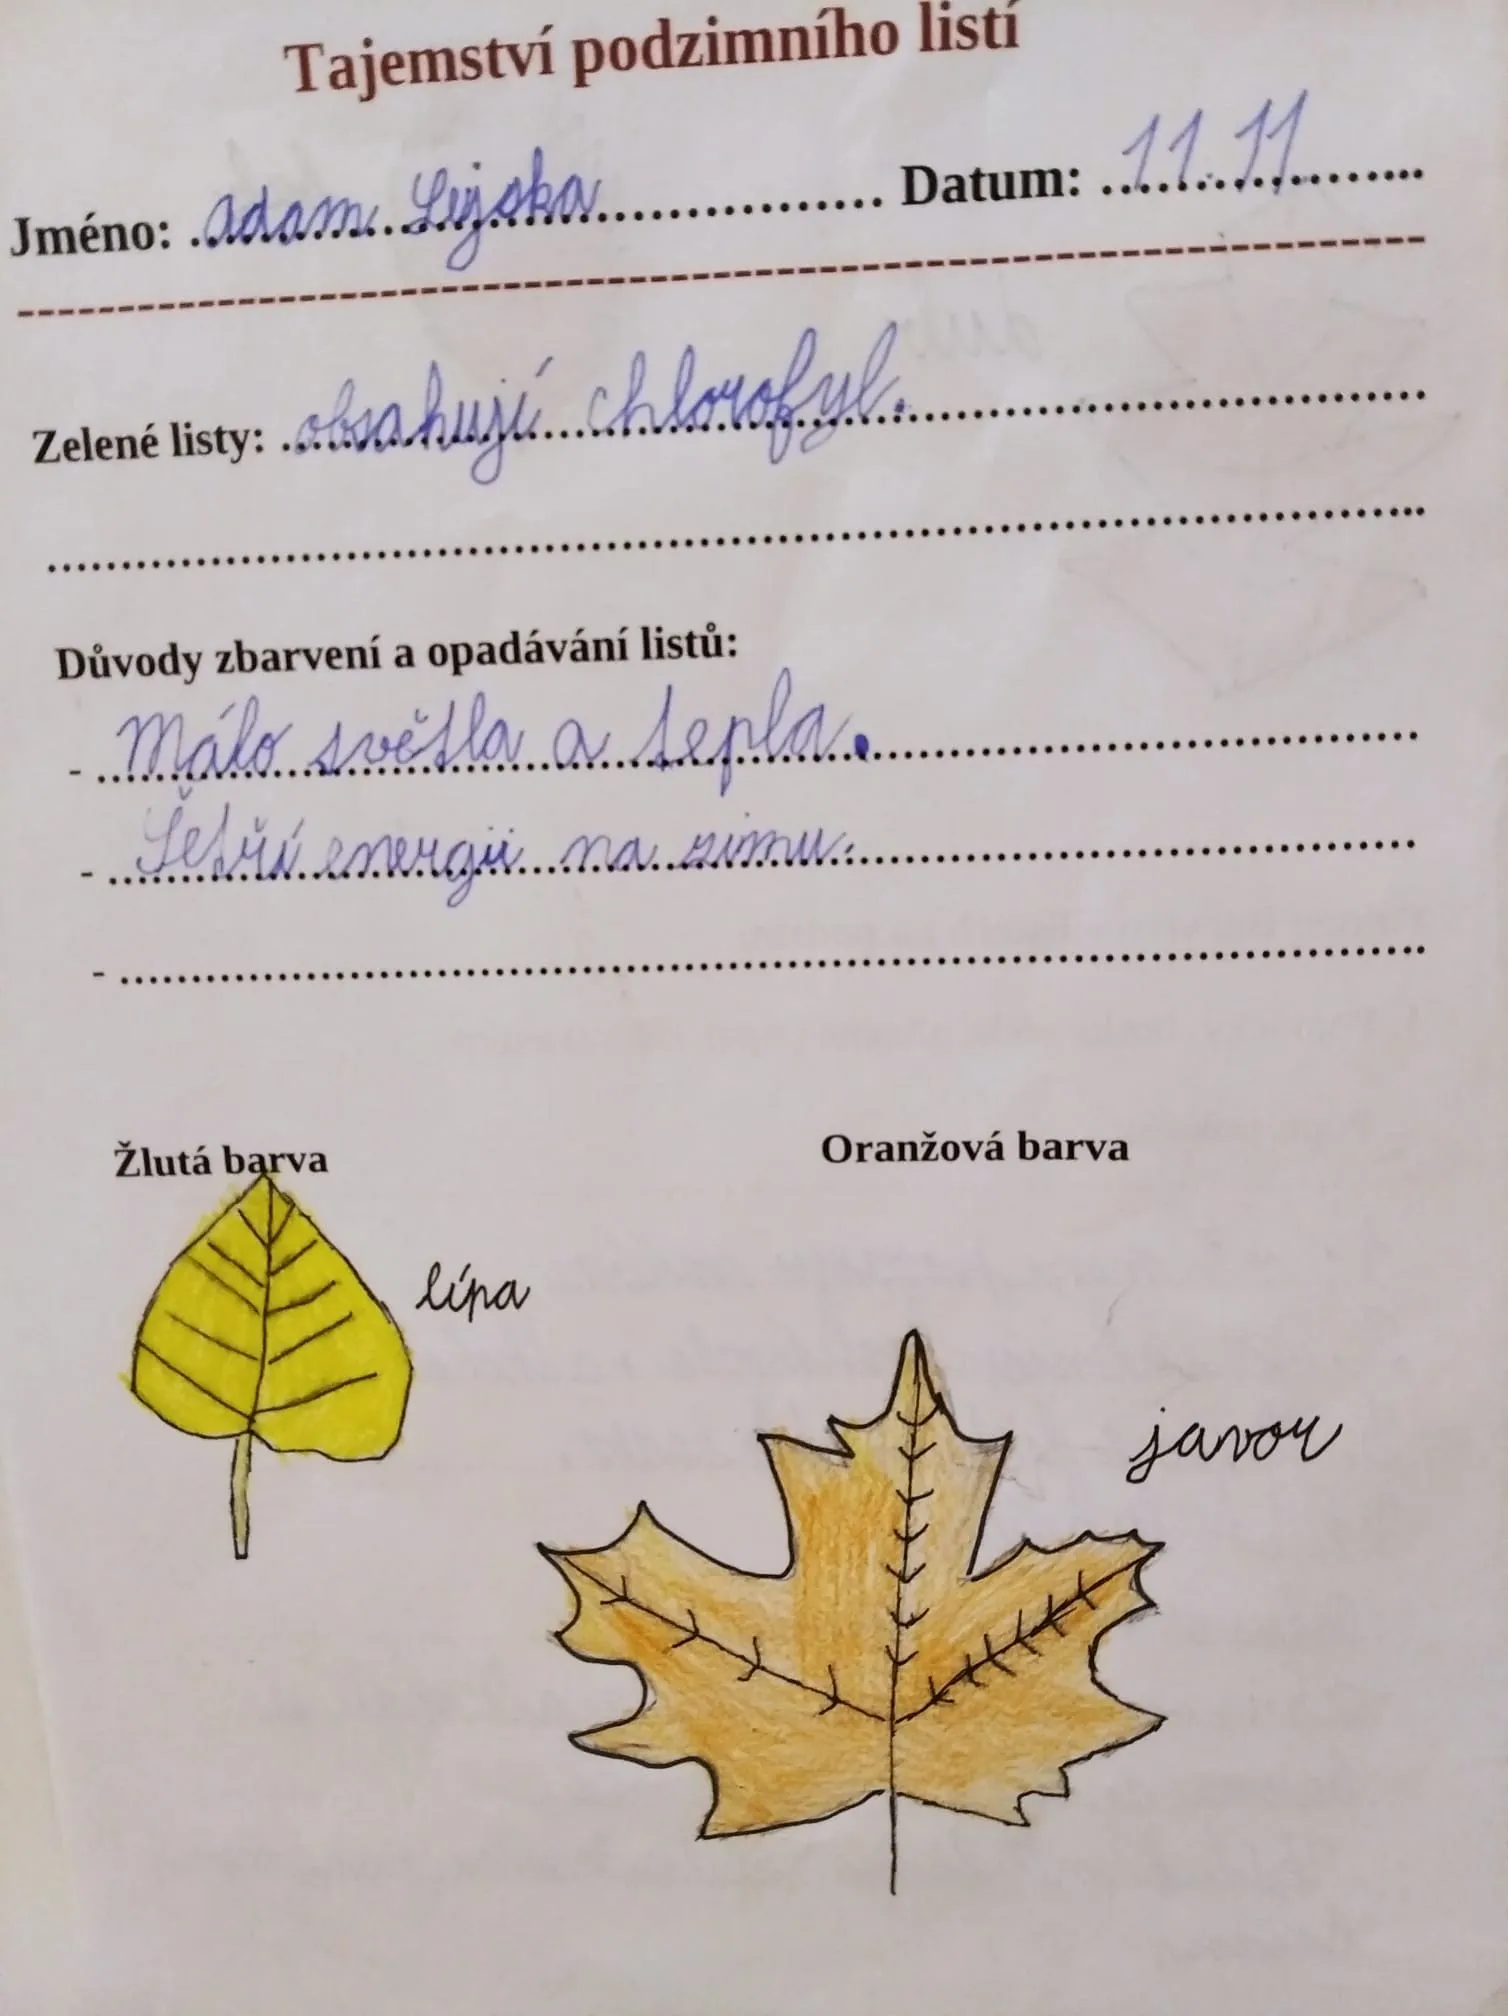 Tajemství podzimního listí
Jméno: Adam Lejska Datum: 11. 11.
Zelené listy: obsahují chlorofyl.
Důvody zbarvení a opadávání listů:
- Málo světla a tepla.
- Šetří energii na zimu.
-
Žlutá barva Oranžová barva
lípa
javor